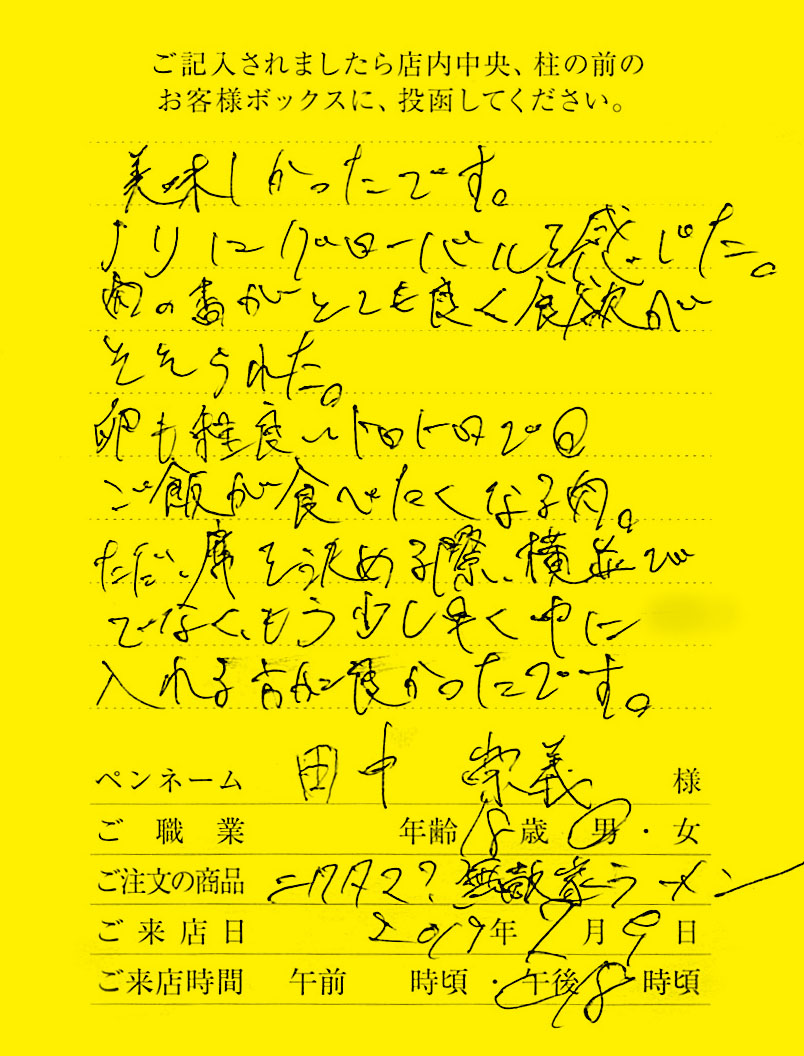 ご記入されましたら店内中央、柱の前の
お客様ボックスに、投函してください。
美味しかったです。
ノリにグローバルを感じた。
肉の香がとても良く食欲が
そそられた。
卵も程良いトロトロで
ご飯が食べたくなる肉。
ただ、席を決める際、横並び
でなく、もう少し早く中に
入れる方が良かったです。
ペンネーム 田中 崇義 様
ご職業 年齢 18 歳 男・女
ご注文の商品 ニクタマ 無敵家ラーメン
ご来店日 2019年 2月 9日
ご来店時間 午前 時頃・午後 8 時頃